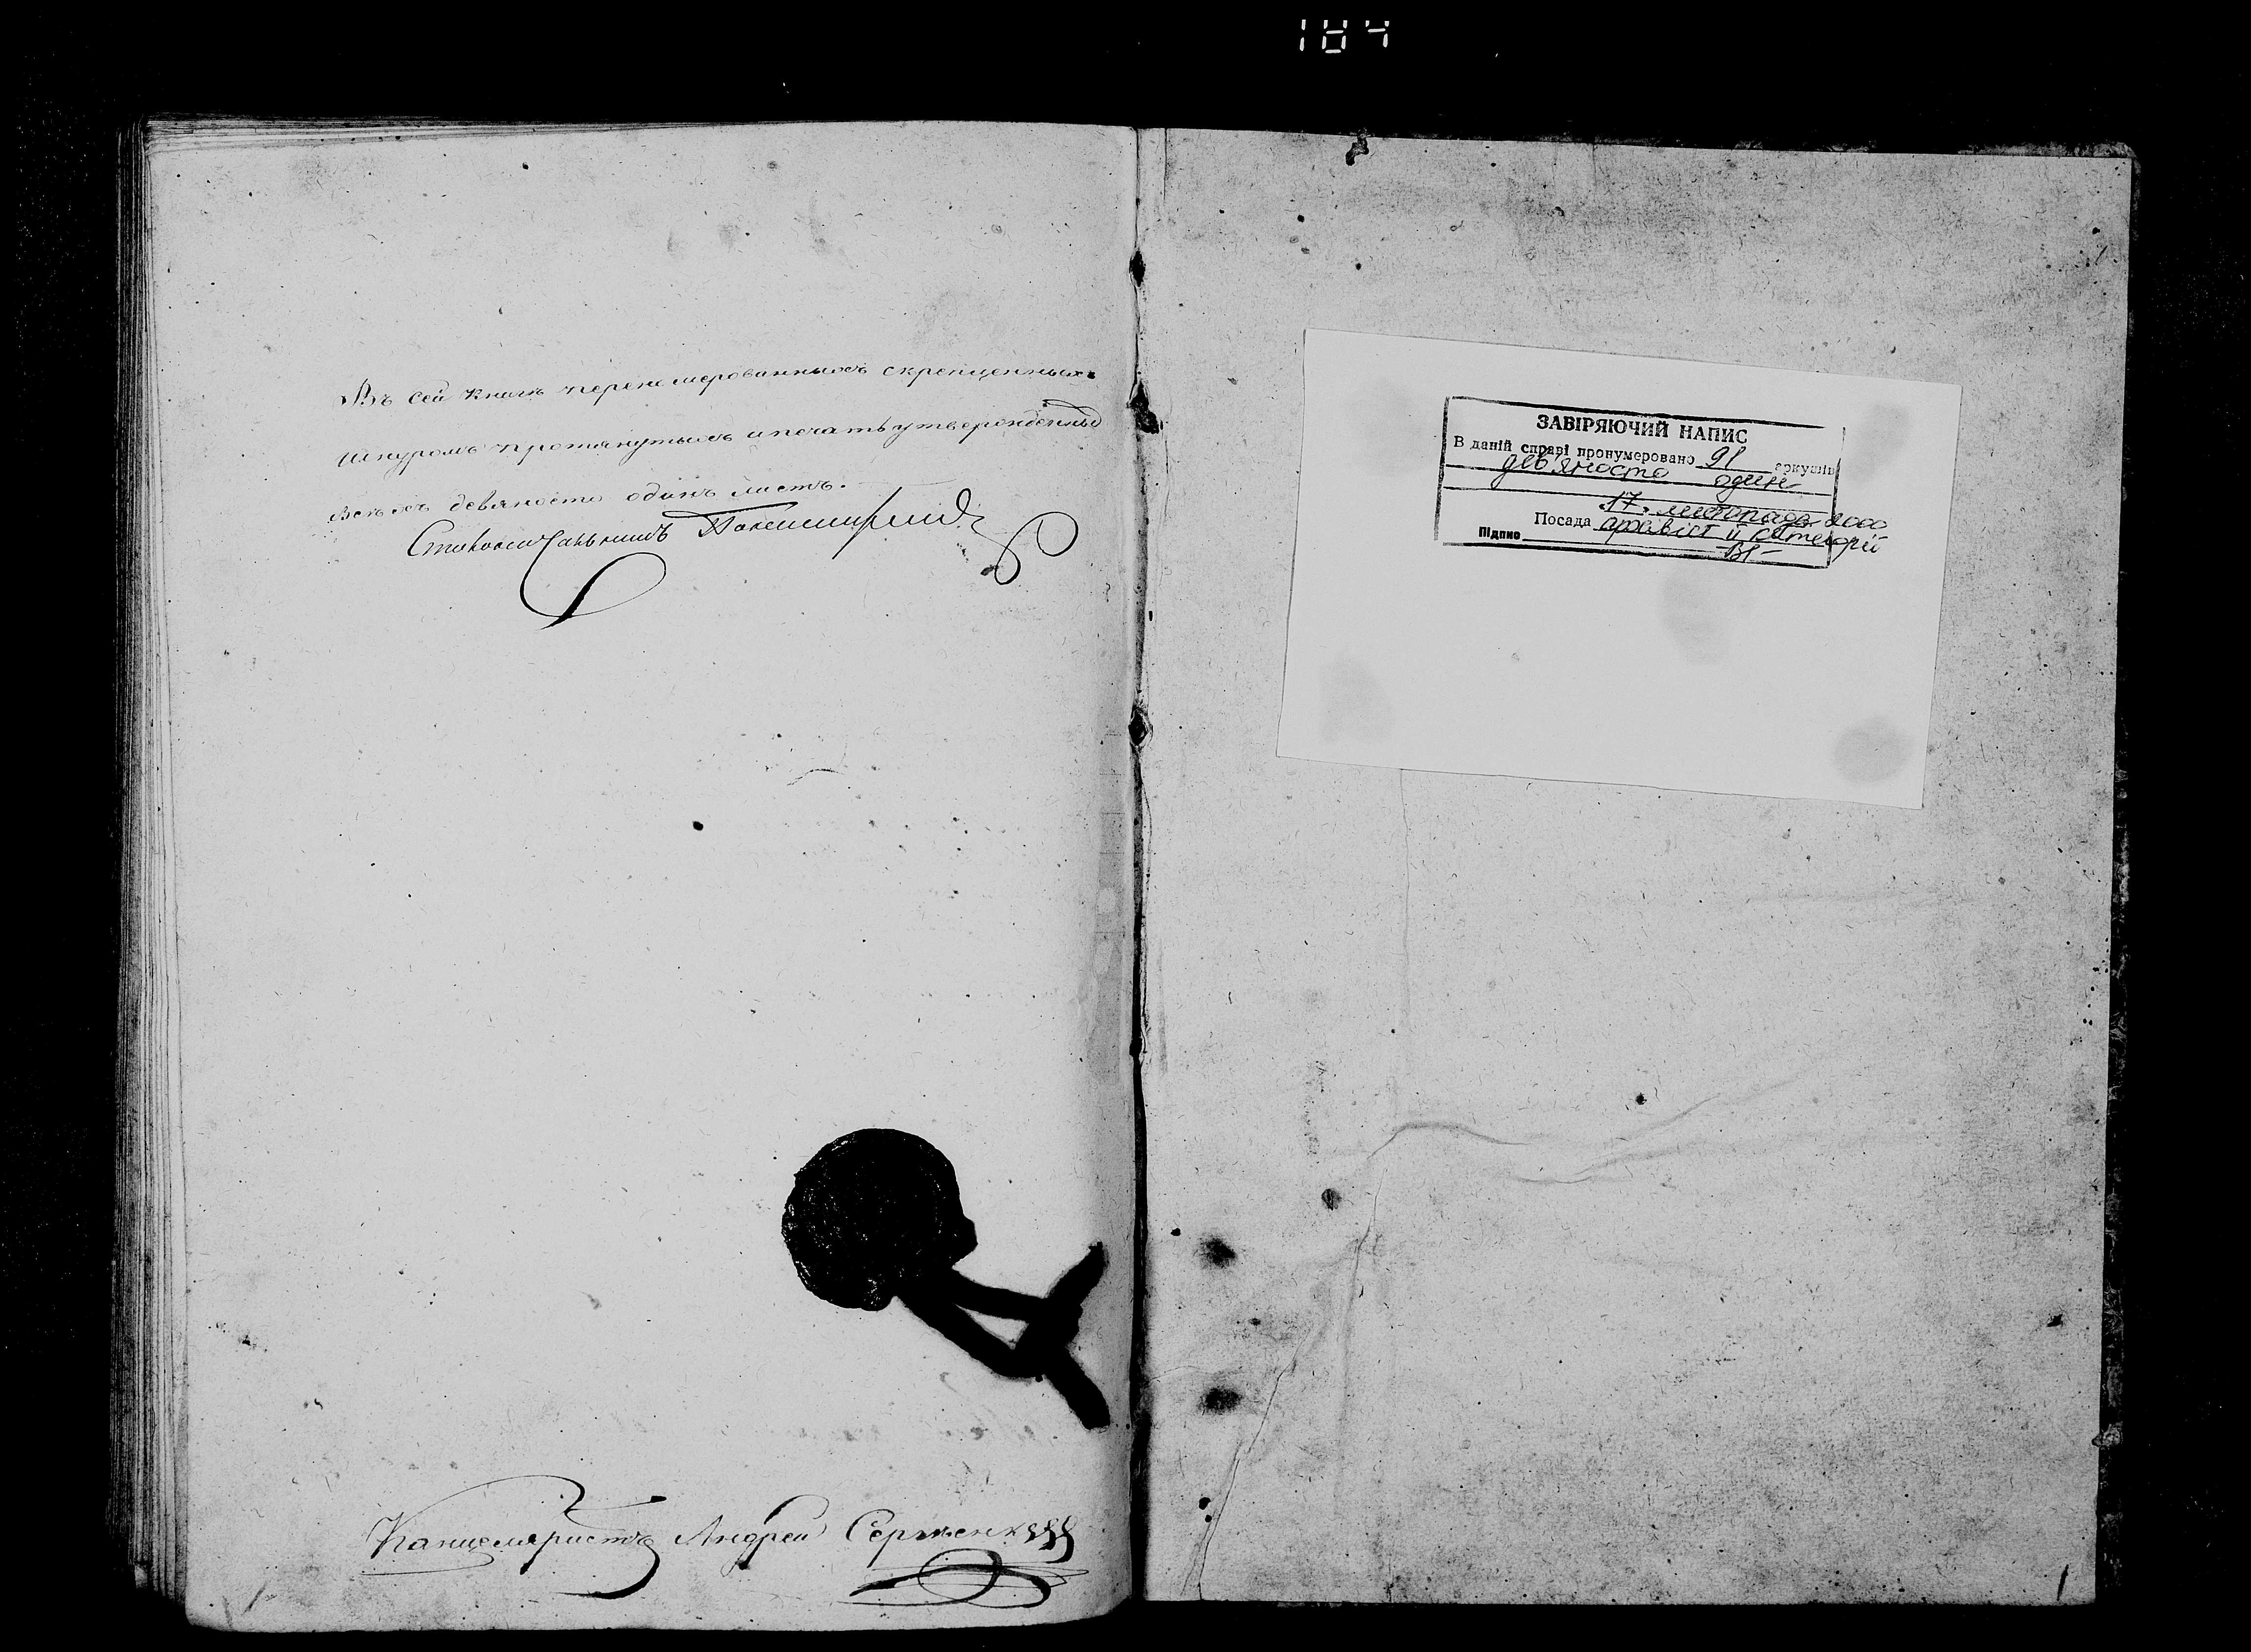 184
Въ сей книгѣ перенумерованныхъ скрепленныхъ
шнуромъ протянутыхъ и печатью утвержденныхъ
всѣхъ девяносто одинъ листъ.
Канцеляристъ Андрей
ЗАВІРЯЮЧИЙ НАПИС
В даній справі пронумеровано 91 аркушів
дев'яносто один
17 листопада 2000
Посада архівіст II категорії
Підпис